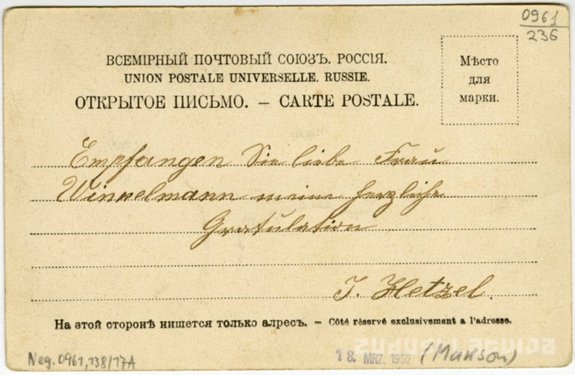 0961
236
ВСЕМІРНЫЙ ПОЧТОВЫЙ СОЮЗЪ. РОССІЯ.
UNION POSTALE UNIVERSELLE. RUSSIE.
ОТКРЫТОЕ ПИСЬМО. – CARTE POSTALE.
Мѣсто
для
марки.
Empfangen Sie liebe Frau
Winkelmann meine herzliche
Gratulation
J. Hetzel.
На этой сторонѣ пишется только адресъ. – Côté réservé exclusivement à l'adresse.
zudusilatvija
Neg. 0961,138/17A
18. MRZ. (Makson)